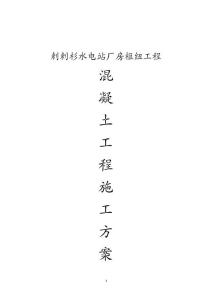 刺刺杉水电站厂房枢纽工程
混
凝
土
工
程
施
工
方
案
1